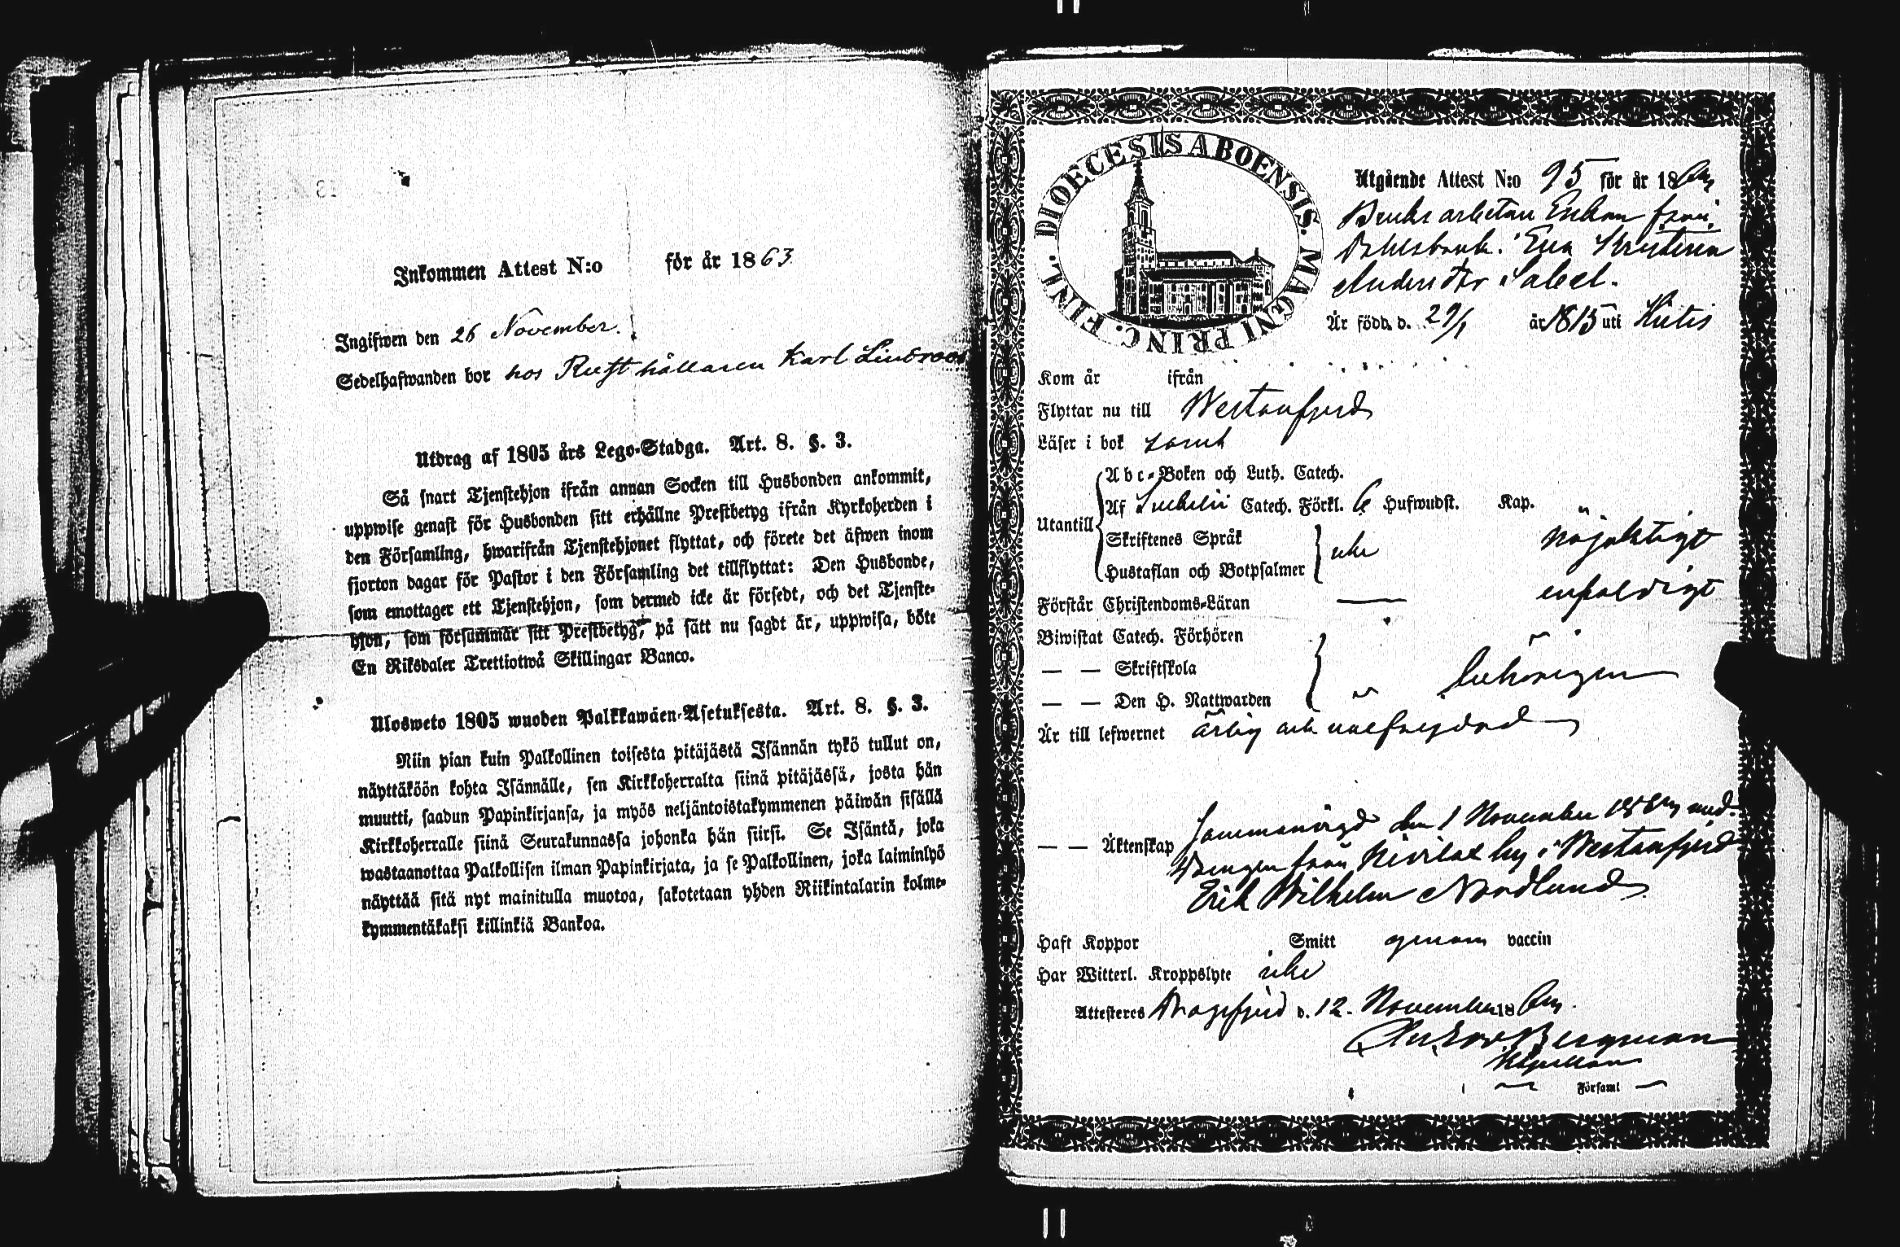 Inkommen Attest N:o för år 1863
Ingifwen den 26 November.
Sedelhafwanden bor hos Rusthållaren Karl Lindroos
Utdrag af 1805 års Lego-Stadga. Art. 8. §. 3.
Så snart Tjenstehjon ifrån annan Socken till Husbonden ankommit,
uppwise genast för Husbonden sitt erhållne Prestbetyg ifrån Kyrkoherden i
den Församling, hwarifrån Tjenstehjonet flyttat, och förete det äfwen inom
fjorton dagar för Pastor i den Församling det tillflyttat: Den Husbonde,
som emottager ett Tjenstehjon, som dermed icke är försedt, och det Tjenste-
hjon, som försummar sitt Prestbetyg, på sätt nu sagdt är, uppwisa, böte
En Riksdaler Trettiotwå Skillingar Banco.
Ulosweto 1805 wuoden Palkkawäen-Asetuksesta. Art. 8. §. 3.
Niin pian kuin Palkollinen toisesta pitäjästä Isännän tykö tullut on,
näyttäköön kohta Isännälle, sen Kirkkoherralta siinä pitäjässä, josta hän
muutti, saadun Papinkirjansa, ja myös neljäntoistakymmenen päiwän sisällä
Kirkkoherralle siinä Seurakunnassa johonka hän siirsi. Se Isäntä, joka
wastaanottaa Palkollisen ilman Papinkirjata, ja se Palkollinen, joka laiminlyö
näyttää sitä nyt mainitulla muotoa, sakotetaan yhden Riikintalarin kolme-
kymmentäkaksi killinkiä Bankoa.
DIOECESIS ABOENSIS. MAGNI PRINC. FINL.
Utgående Attest N:o 95 för år 18
Bruks arbetare Enkan från
Dahlsbruk. Eva Kristina
Anders dtr Sabel.
Är född d. 29/1 år 1815 uti Hitis
Kom år ifrån
Flyttar nu till Westanfjerd
Läser i bok samt
Abc-Boken och Luth. Catech.
Utantill Af Svebelii Catech. Förkl. 6 Hufwudst. Kap.
Skriftenes Språk
Hustaflan och Botpsalmer icke nöjaktigt
Förstår Christendoms-Läran enfaldigt
Biwistat Catech. Förhören
— — Skriftskola
— — Den H. Nattwarden behörigen
Är till lefwernet ärlig och välfrejdad
— — Äktenskap Sammanvigd den 1 November med
Drengen från Nivilax by i Westanfjerd
Erik Wilhelm Nordlund
Haft Koppor Smitt genom vaccin
Har Witterl. Kroppslyte icke
Attesteres Dragsfjerd d. 12 November 18
Bergman
Kapellan
Församl